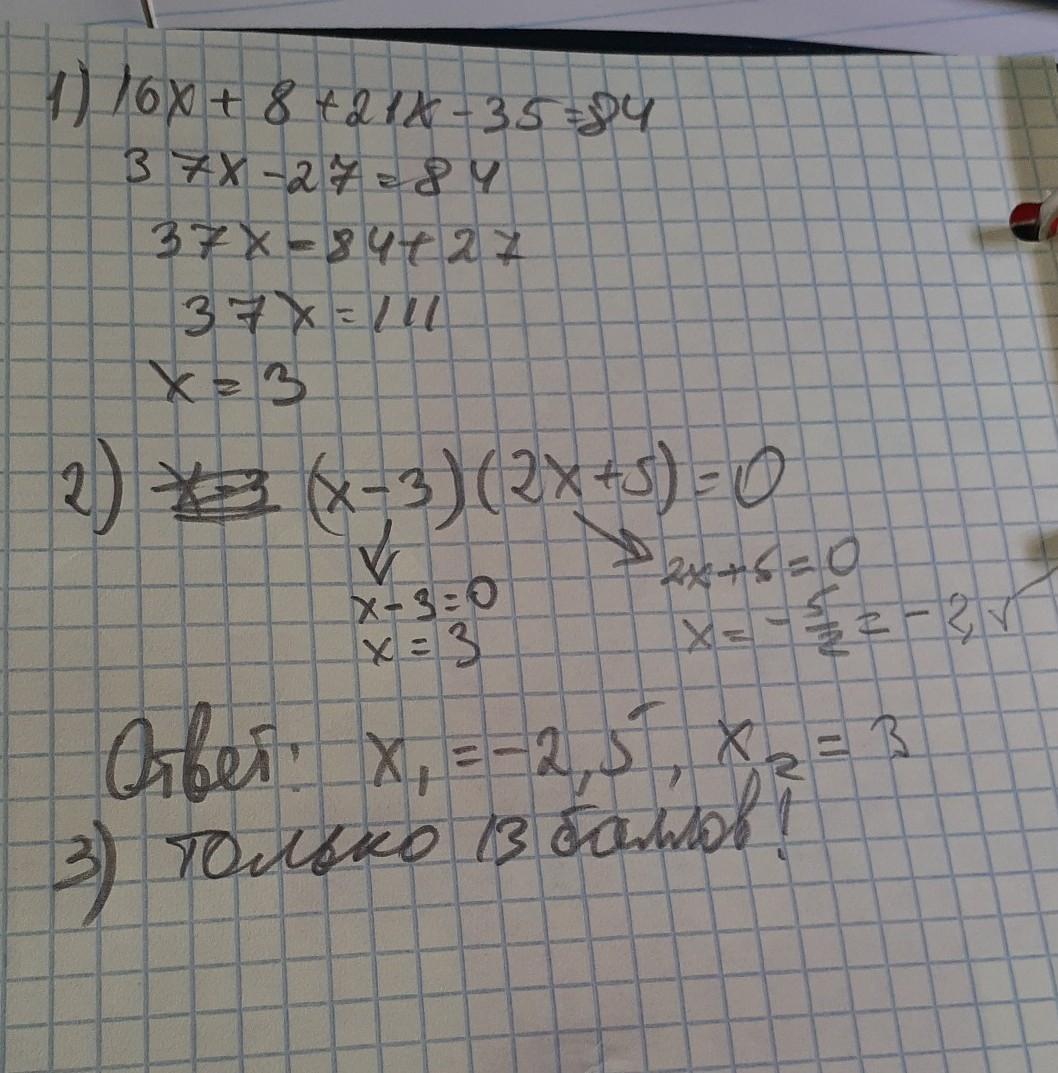 1) 16x + 8 + 21x - 35 = 84
37x - 27 = 84
37x = 84 + 27
37x = 111
x = 3
2) (x-3)(2x+5)=0
x-3=0
x = 3
2x+5=0
x = -5/2 = -2,5
Ответ: x₁ = -2,5, x₂ = 3
3) только 13 баллов!